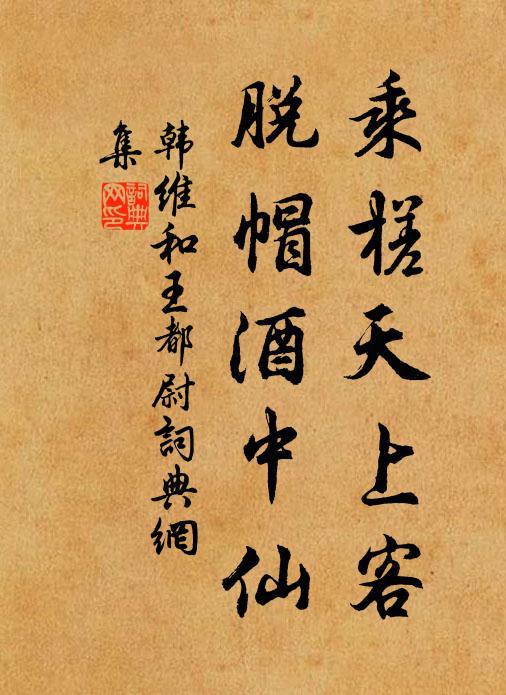 乘槎天上客
脱帽酒中仙
韩维和王都尉詞典網
集
詞典网印